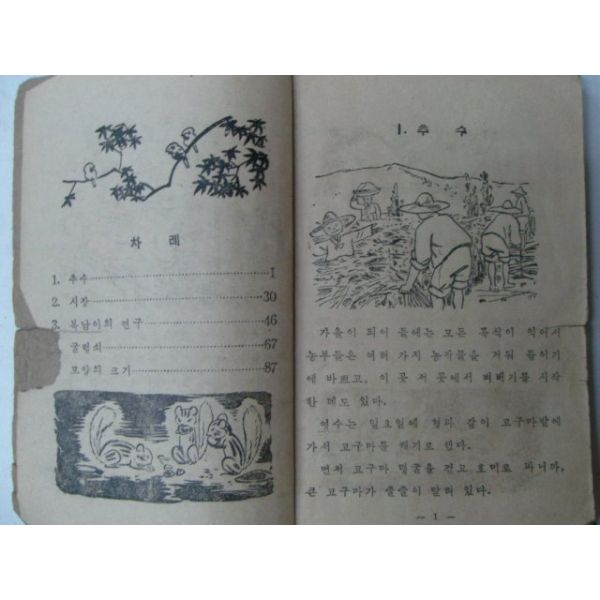 차 례
1. 추수 1
2. 시장 30
3. 복남이의 연구 46
굴렁쇠 67
모양의 크기 87
1. 추 수
가을이 되어 들에는 모든 곡식이 익어서
농부들은 여러 가지 농작물을 거둬 들이기
에 바쁘고, 이 곳 저 곳에서 벼베기를 시작
한 데도 있다.
영수는 일요일에 형과 같이 고구마밭에
가서 고구마를 캐기로 했다.
먼저 고구마 덩굴을 걷고 호미로 파니까,
큰 고구마가 줄줄이 달려 있다.
— 1 —